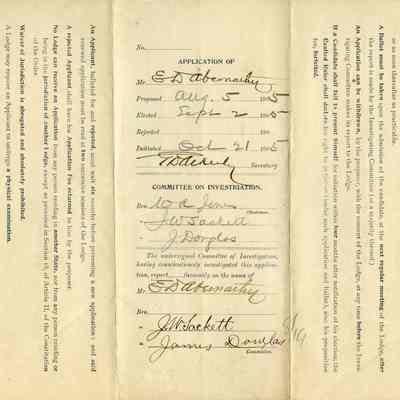 or as soon thereafter as practicable.
A Ballot must be taken upon the admission of the candidate, at the next regular meeting of the Lodge, after
the report is made by the Investigating Committee (or a majority thereof)
An Application can be withdrawn, by the proposer, with the consent of the Lodge, at any time before the Inves-
tigating Committee makes its report to the Lodge.
If a Candidate shall fail to present himself for initiation within four months after notification of his election, the
No.
APPLICATION OF
Mr. E D Abernathy
Proposed Aug. 5 1905
Elected Sept 2 1905
Rejected 190
Initiated Oct 21 1905
Secretary
COMMITTEE ON INVESTIGATION.
Bro. W A Jones
Chairman.
" J W Sackett
" J Douglas
The undersigned Committee of Investigation,
having conscientiously investigated this applica-
tion, report favorably on the name of
Mr. E D Abernathy
Bro.
" J.W. Sackett
" James Douglas
Committee.
An Applicant, balloted for and rejected, must wait six months before presenting a new application; and said
renewed application must be read at two successive sessions of the Lodge.
A rejected Applicant shall have his Application Fee returned to him by the proposer.
No Lodge can receive an Application from any person residing in another State, nor from any person residing or
being in the jurisdiction of another Lodge, except as provided in Section of Article II, of the Constitution
of the Order.
Waiver of Jurisdiction is abrogated and absolutely prohibited.
A Lodge may require an Applicant to undergo a physical examination.